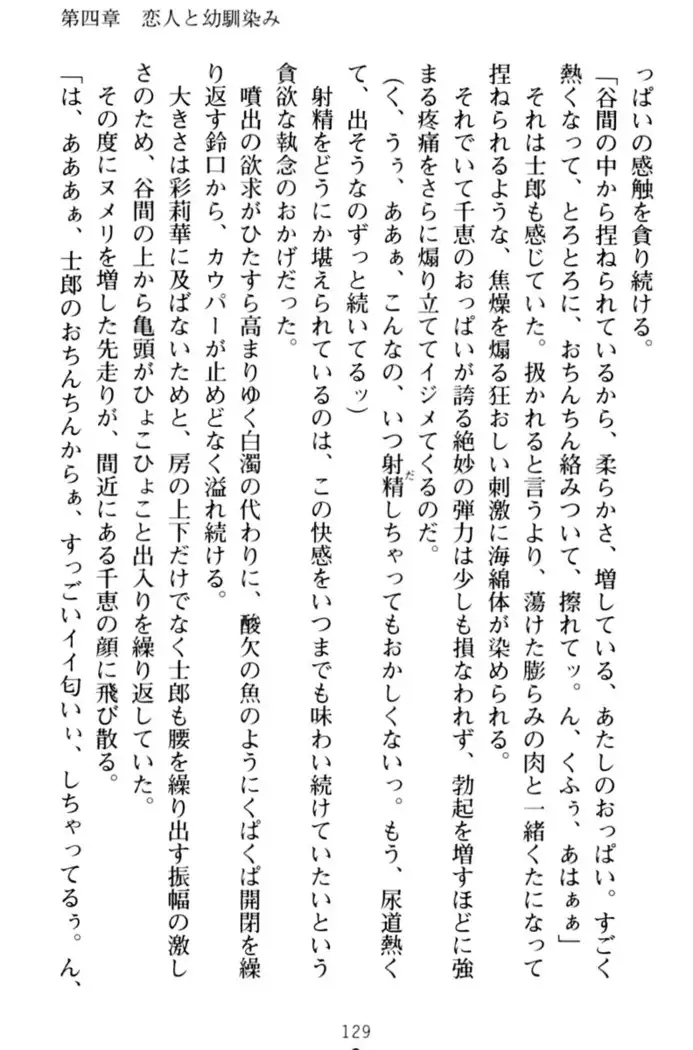 第四章　恋人と幼馴染み
っぱいの感触を貪り続ける。
「谷間の中から捏ねられているから、柔らかさ、増している、あたしのおっぱい。すごく
熱くなって、とろとろに、おちんちん絡みついて、擦れてッ。ん、くふぅ、あはぁぁ」
それは士郎も感じていた。扱かれると言うより、蕩けた膨らみの肉と一緒くたになって
捏ねられるような、焦燥を煽る狂おしい刺激に海綿体が染められる。
それでいて千恵のおっぱいが誇る絶妙の弾力は少しも損なわれず、勃起を増すほどに強
まる疼痛をさらに煽り立ててイジメてくるのだ。
(く、うぅ、ああぁ、こんなの、いつ射精しちゃってもおかしくないっ。もう、尿道熱く
だ
て、出そうなのずっと続いてるッ)
射精をどうにか堪えられているのは、この快感をいつまでも味わい続けていたいという
貪欲な執念のおかげだった。
噴出の欲求がひたすら高まりゆく白濁の代わりに、酸欠の魚のようにくぱくぱ開閉を繰
り返す鈴口から、カウパーが止めどなく溢れ続ける。
大きさは彩莉華に及ばないためと、房の上下だけでなく士郎も腰を繰り出す振幅の激し
さのため、谷間の上から亀頭がひょこひょこと出入りを繰り返していた。
その度にヌメリを増した先走りが、間近にある千恵の顔に飛び散る。
「は、あああぁ、士郎のおちんちんからぁ、すっごいイイ匂いぃ、しちゃってるぅ。ん、
129